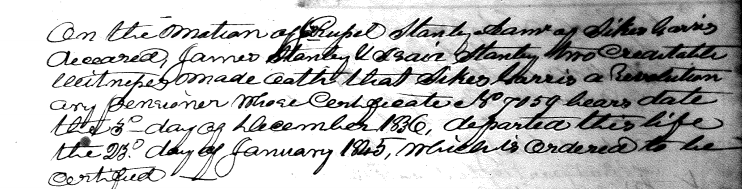 On the Motion of Russel Stanly Admr of Sikes Garris
deceased, James Stanly & Isaic Stanly two Creditable
Witnesses Made Oath that Sikes Garris a Revolution
ary pensioner Whose Certificate No 7059 bears date
the 3d day of December 1836, departed this life
the 23d day of January 1845, Which is Ordered to be
Certified